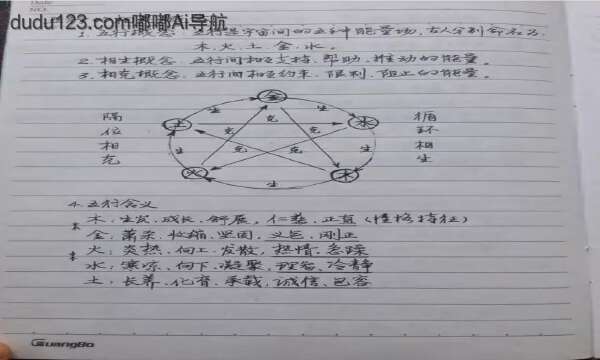 Date
NO.
dudu123.com嘟嘟Ai导航
1. 五行概念：五行是宇宙间的五种能量场，古人分别命名为
木、火、土、金、水。
2. 相生概念：五行间相互支持、帮助、推动的能量。
3. 相克概念：五行间相互约束、限制、阻止的能量。
金
生
生
土
克
水
克
克
生
生
克
克
火
木
生
隔
位
相
克
循
环
相
生
4. 五行含义
木：生发、成长、舒展、仁慈、正直（性格特征）
金：萧杀、收缩、坚固、义气、刚正
火：炎热、向上、发散、热情、急躁
水：寒凉、向下、凝聚、理智、冷静
土：长养、化育、承载、诚信、包容
GuangBo